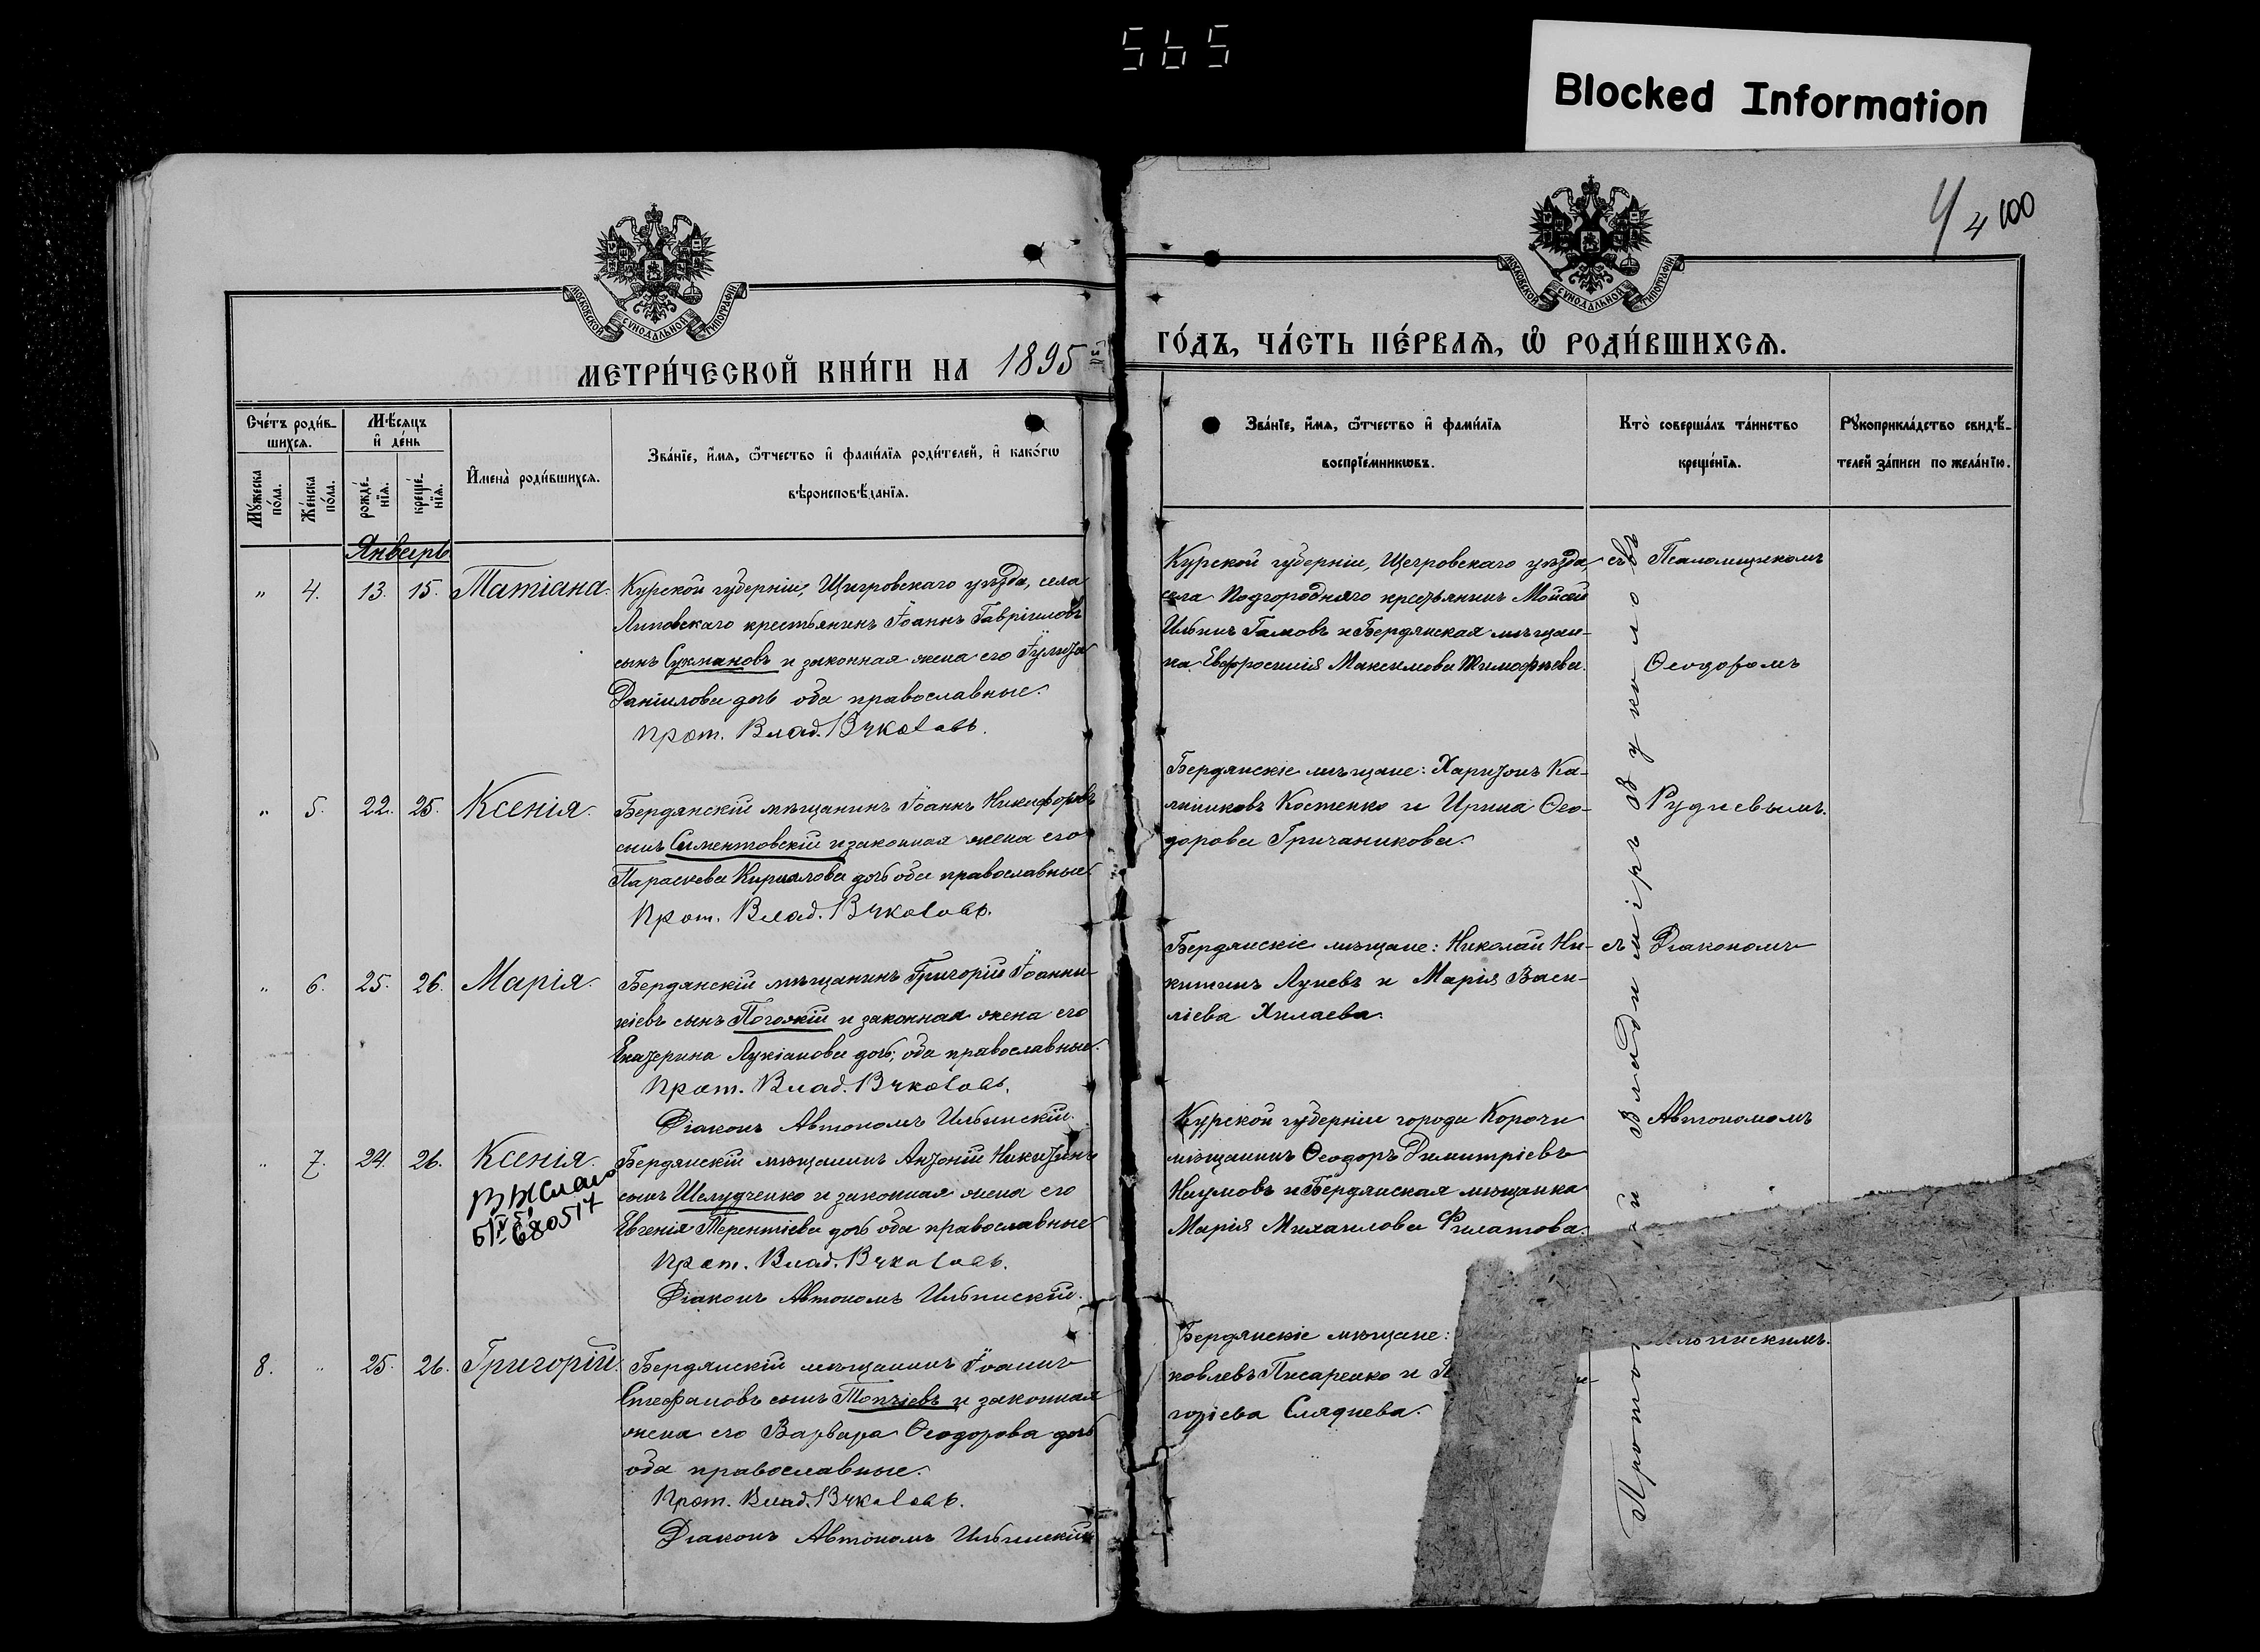 565
Blocked Information
4 4 100
МОСКОВСКОЙ СѴНОДАЛЬНОЙ ТИПОГРАФІИ
МОСКОВСКОЙ СѴНОДАЛЬНОЙ ТИПОГРАФІИ
МЕТРИ́ЧЕСКОЙ КНИ́ГИ НА 1895
ГО́ДЪ, ЧА́СТЬ ПЕ́РВАѦ, Ѡ҆ РОДИ́ВШИХСѦ.
Сче́тъ роди́в-
шихсѧ.
Мꙋ́жеска по́ла.
Же́нска по́ла.
Мѣ́сѧцъ
и҆ де́нь
рожде́-
нїѧ.
креще́-
нїѧ.
И҆мена̀ роди́вшихсѧ.
Зва́нїе, и҆́мѧ, ѻ҆́тчество и҆ фами́лїѧ роди́телей, и҆ како́гѡ
вѣроисповѣ́данїѧ.
Зва́нїе, и҆́мѧ, ѻ҆́тчество и҆ фами́лїѧ
воспрїе́мникѡвъ.
Кто̀ соверша́лъ та́инство
креще́нїѧ.
Рꙋкоприкла́дство свидѣ́-
телей за́писи по жела́нїю.
Январь
" 4. 13. 15. Татіана. Курской губерніи, Щигровскаго уѣзда, села
Липовскаго крестьянинъ Іоаннъ Гавріиловъ
сынъ Сукмановъ и законная жена его Іулита
Даніилова дочь оба православные.
Прот. Влад.
Курской губерніи, Щегровскаго уѣзда,
села Подгородняго крестьянинъ Мойсей
Ильинъ Гамовъ и Бердянская мѣщан-
ка Евфросинія Максимова Тимофѣева.
съ Псаломщикомъ
Ѳеодоромъ
" 5. 22. 25. Ксенія. Бердянскій мѣщанинъ Іоаннъ Никифоровъ
сынъ Симентовскій и законная жена его
Параскева Кириллова дочь оба православные
Прот. Влад.
Бердянскіе мѣщане: Харитонъ Ка-
линиковъ Костенко и Ирина Ѳео-
дорова Гричаникова.
Рудневымъ.
" 6. 25. 26. Марія. Бердянскій мѣщанинъ Григорій Іоанни-
кіевъ сынъ и законная жена его
Екатерина Лукіанова дочь, оба православные.
Прот. Влад.
Діаконъ Автономъ Ильинскій.
Бердянскіе мѣщане: Николай Ни-
китинъ Луневъ и Марія Васи-
ліева Хилаева.
съ Діакономъ
" 7. 24. 26. Ксенія. Бердянскій мѣщанинъ Антоній Никитинъ
сынъ Шелудченко и законная жена его
Евгенія Терентіева дочь оба православные
Прот. Влад.
Діаконъ Автономъ Ильинскій.
680517
Курской губерніи города Корочи
мѣщанинъ Ѳеодоръ Димитріевъ
Наумовъ и Бердянская мѣщанка
Марія Михаилова Филатова.
Автономомъ
8. " 25. 26. Григорій. Бердянскій мѣщанинъ Іоаннъ
Стефановъ сынъ Топчіевъ и законная
жена его Варвара Ѳеодорова дочь
оба православные.
Прот. Влад.
Діаконъ Автономъ Ильинскій
Бердянскіе мѣщане:
ковлевъ Писаренко и
горіева Сляднева.
Ильинскимъ.
Владиміръ